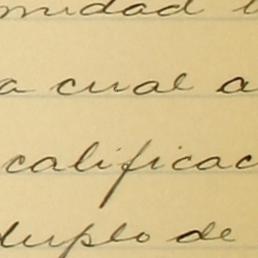 midad l
a cual a
calificac
duplo de